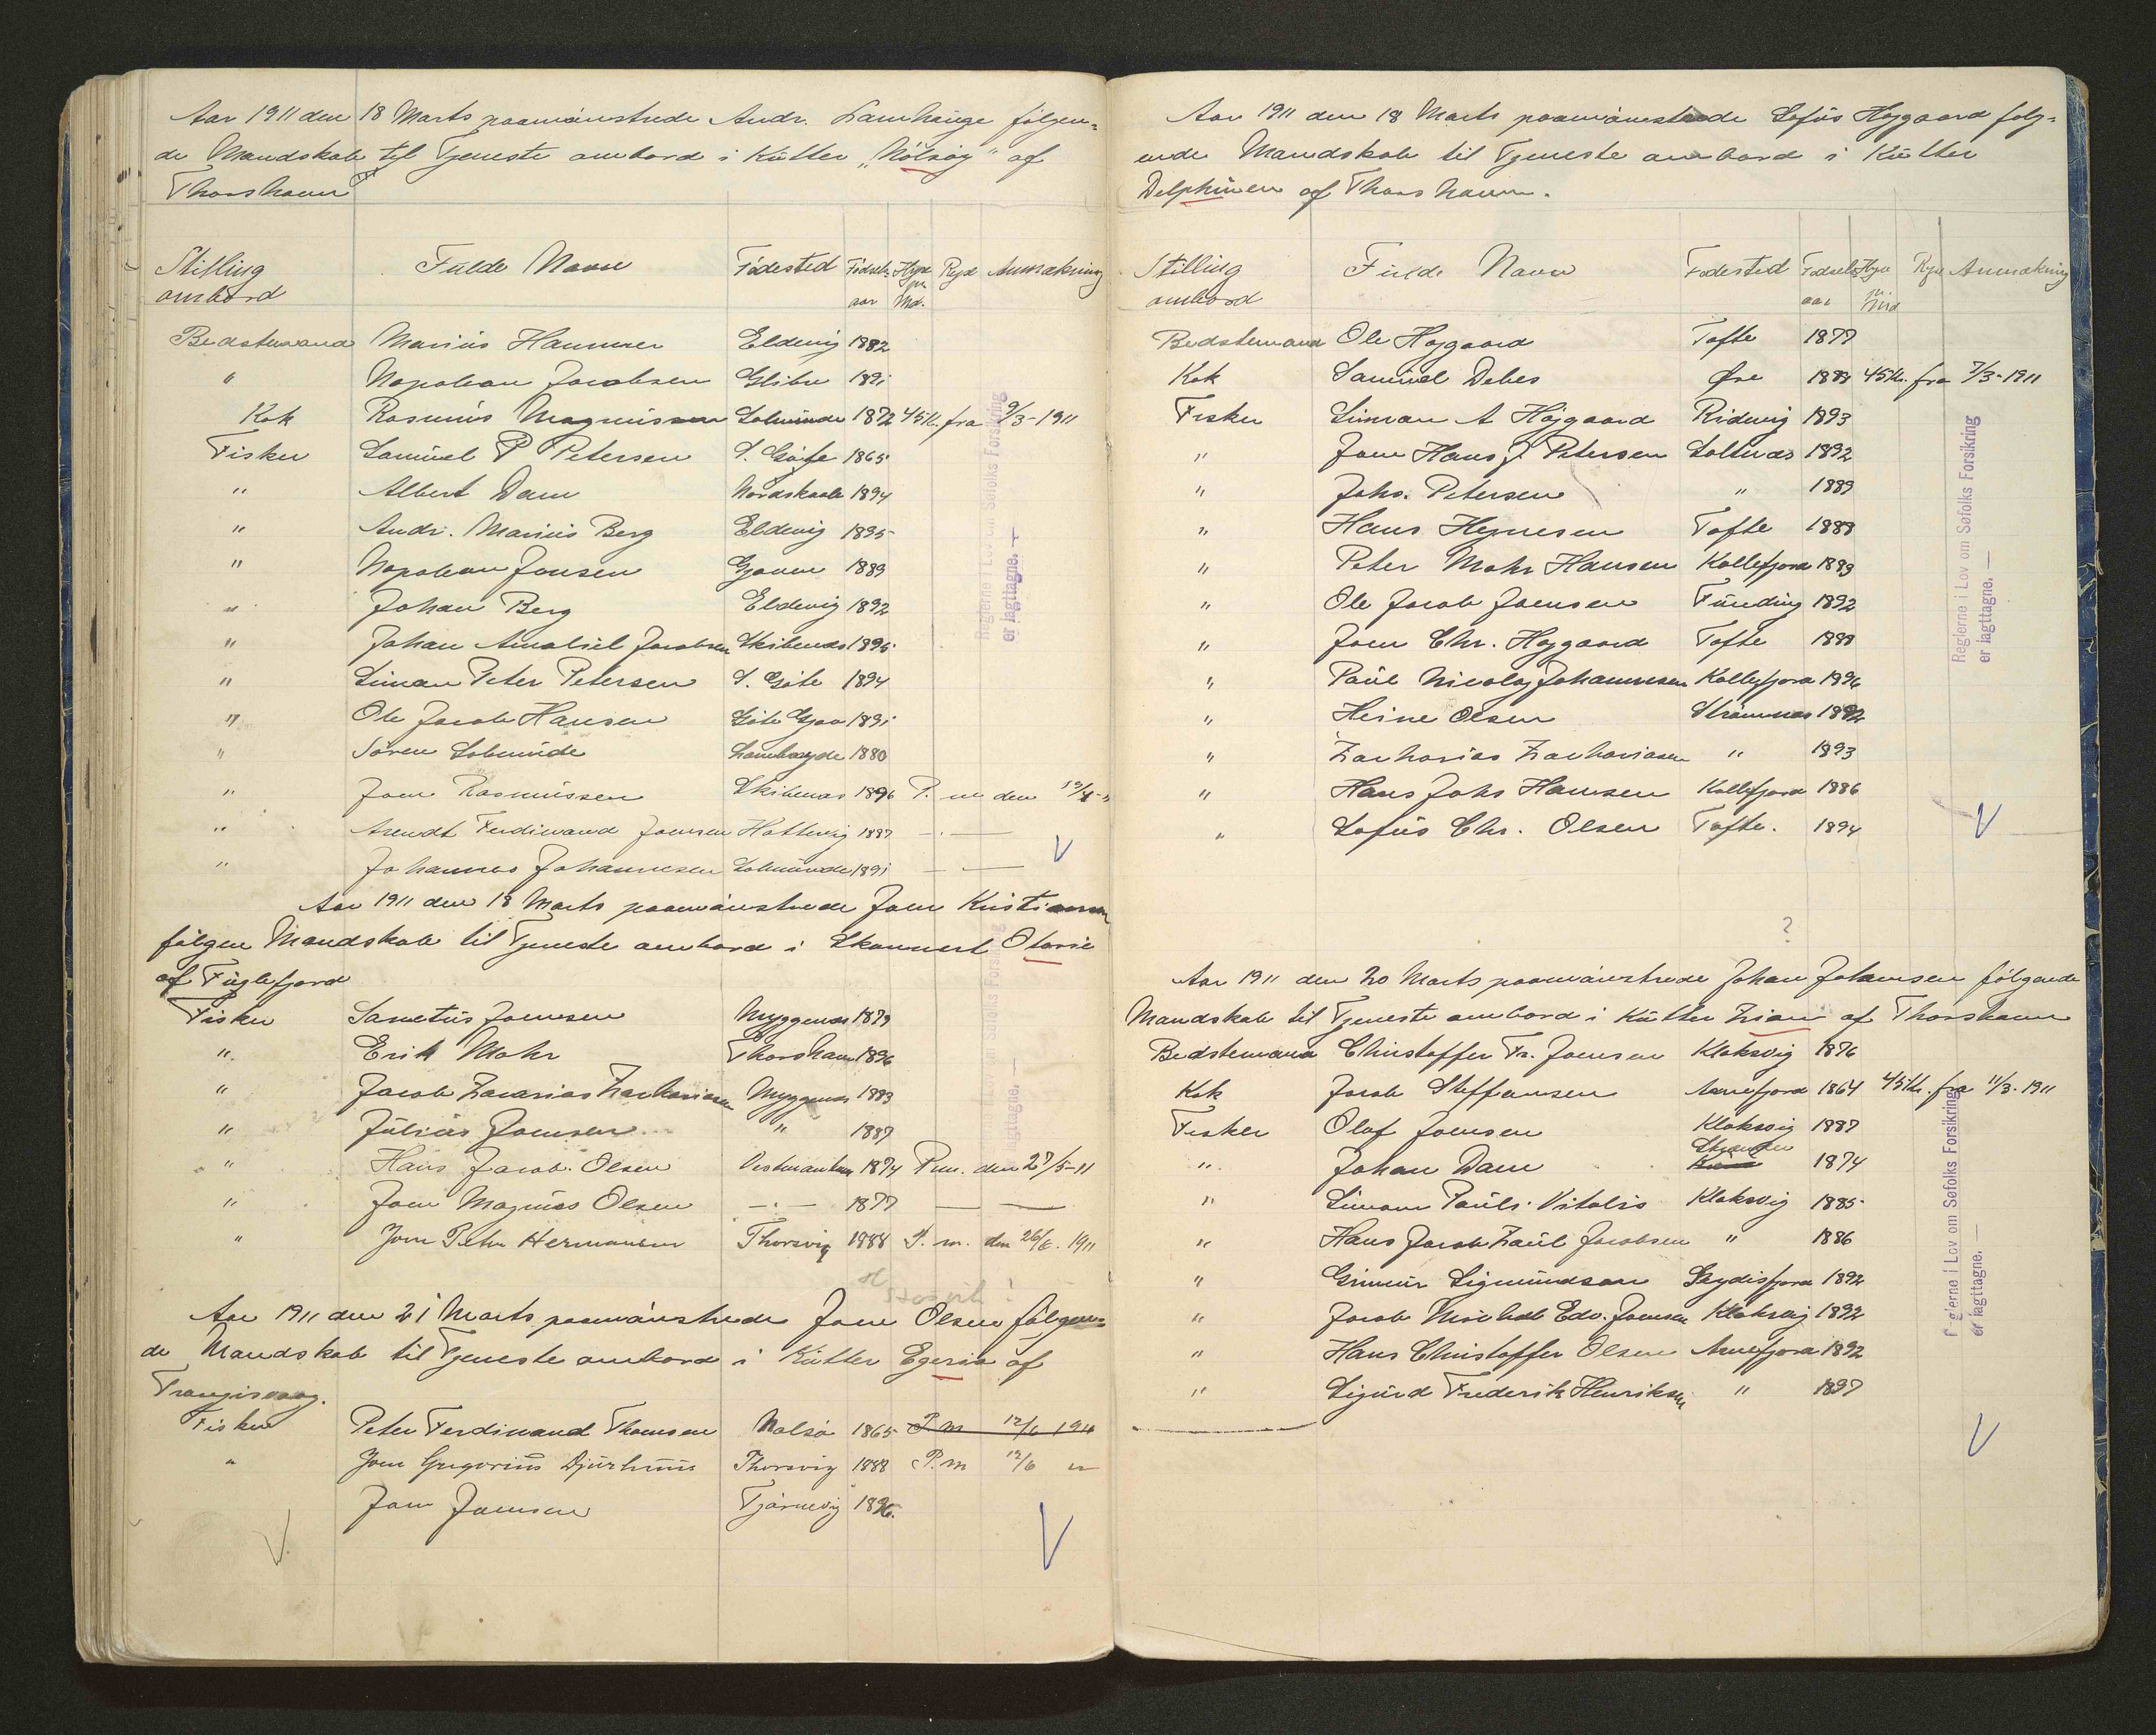 Aar 1911 den 18 Marts paamönstrede Andr. Lamhauge følgen=
de Mandskab til Tjeneste ombord i Kutter „Nólsøy" af
Thorshavn
Stilling ombord Fulde Navn Födested Födsels aar Hyre pr. Md. Rejse Anmærkning
Bedstemand Marius Hammer Eldevig 1882
" Napolean Jacobsen Glibre 1891
Kok Rasmus Magnussen Solmunde 1872 45 Kr. fra 9/3-1911
Fisker Samuel P Petersen S. Göte 1865
" Albert Dam Nordskaale 1894
" Andr. Marius Berg Eldevig 1895
" Napolean Joensen Gjoven 1889
" Johan Berg Eldevig 1892
" Johan Amaliel Jacobsen Skibenæs 1895
" Simon Peter Petersen S. Göte 1894
" Ole Jacob Hansen Göte Gjov 1891
" Sören Solmunde Lamhauge 1880
" Joen Rasmussen Skibenæs 1896 P. m den
" Arendt Ferdinand Joensen Hattevig 1887 — " —
" Johannes Johannesen Solmunde 1891 — —
Aar 1911 den 18 Marts paamönstrede Joen Kristiansen
fölgen Mandskab til Tjeneste ombord i Skonnert Otarie
af Fuglefjord
Fisker Sanctus Joensen Myggenæs 1879
" Erik Mohr Thorshavn 1896
" Jacob Zacarias Zachariasen Myggenæs 1883
" Július Joensen " 1887
" Hans Jacob Olsen Vestmanhavn 1874 P.m. den 27/5-11
" Joen Magnus Olsen — " — 1877 — —
" Joen Peter Hermansen Thorsvig 1888 P. m. den 26/6. 1911
Aar 1911 den 21 Marts paamönstrede Joen Olsen fölgen=
de Mandskab til Tjeneste ombord i Kutter Egeria af
Trangisvaag.
Fisker Peter Ferdinand Thomsen Nolsö 1865 P. m 12/6 1911
" Joen Gregorius Djurhuus Thorsvig 1888 P. m 12/6 "
Joen Joensen Tjörnevig 1896.
Aar 1911 den 18 Marts paamönstrede Sofus Højgaard følg=
ende Mandskab til Tjeneste ombord i Kutter
Delphinen af Thorshavn.
Stilling ombord Fulde Navn Fødested Fødsels aar Hyre pr. Md Rejse Anmærkning
Bedstemand Ole Højgaard Tofte 1877
Kok Samuel Debes Øre 1888 45 Kr. fra 7/3-1911
Fisker Simon A Højgaard Ridevig 1893
" Joen Hans J. Petersen Saltnæs 1892
" Johs. Petersen " 1889
" Hans Heynesen Tofte 1888
" Peter Mohr Hansen Kollefjord 1889
" Ole Jacob Joensen Funding 1892
" Joen Chr. Højgaard Tofte 1888
" Paul Nicolaj Johannesen Kollefjord 1896
" Heine Olsen Strömnæs 1892
" Zacharias Zachariasen " 1893
" Hans Johs Hansen Kollefjord 1886
" Sofus Chr. Olsen Tofte. 1894
Reglerne i Lov om Søfolks Forsikring
er iagttagne. —
?
Aar 1911 den 20 Marts paamönstrede Johan Johansen fölgende
Mandskab til Tjeneste ombord i Kutter Zion af Thorshavn
Bedstemand Christoffer Fr. Joensen Klaksvig 1876
Kok Jacob Steffansen Arnefjord 1864 45 Kr. fra 11/3-1911
Fisker Olaf Joensen Klaksvig 1887
" Johan Dam 1874
" Simon Pauli Vitalis Klaksvig 1885
" Hans Jacob Zaul Jacobsen " 1886
" Grimur Sigmundson Seydisfjord 1892
" Jacob Michael Edv. Joensen Klaksvig 1892
" Hans Christoffer Olsen Arnefjord 1892
" Sigurd Frederik Henriksen " 1897
Reglerne i Lov om Søfolks Forsikring
er iagttagne. —